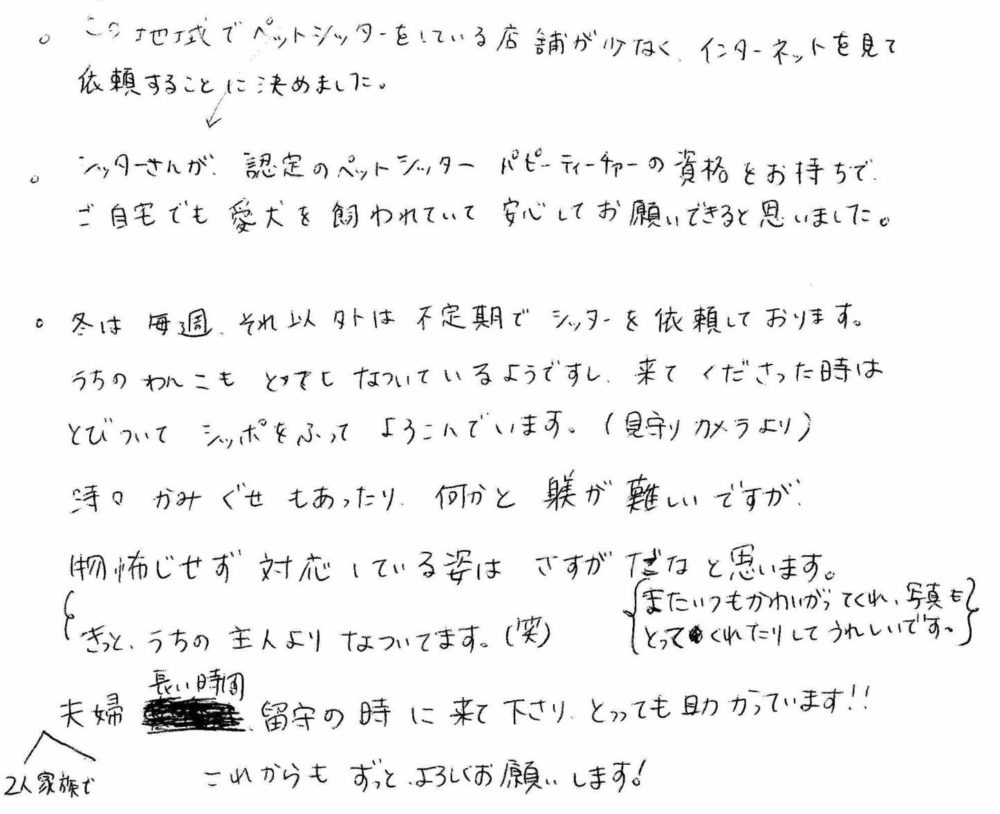 。この地域でペットシッターをしている店舗が少なく、インターネットを見て
依頼することに決めました。
。シッターさんが、認定のペットシッター パピーティーチャーの資格をお持ちで、
ご自宅でも愛犬を飼われていて安心してお願いできると思いました。
。冬は毎週、それ以外は不定期でシッターを依頼しております。
うちのわんこもとってもなついているようですし、来てくださった時は
とびついてシッポをふってよろこんでいます。(見守りカメラより)
時々かみぐせもあったり、何かと躾が難しいですが、
物怖じせず対応している姿はさすがだなと思います。
またいつもかわいがってくれ、写真も
とってくれたりしてうれしいです。
きっと、うちの主人よりなついてます。(笑)
長い時間
夫婦 留守の時に来て下さり、とっても助かっています!!
2人家族で
これからもずっと、よろしくお願いします!